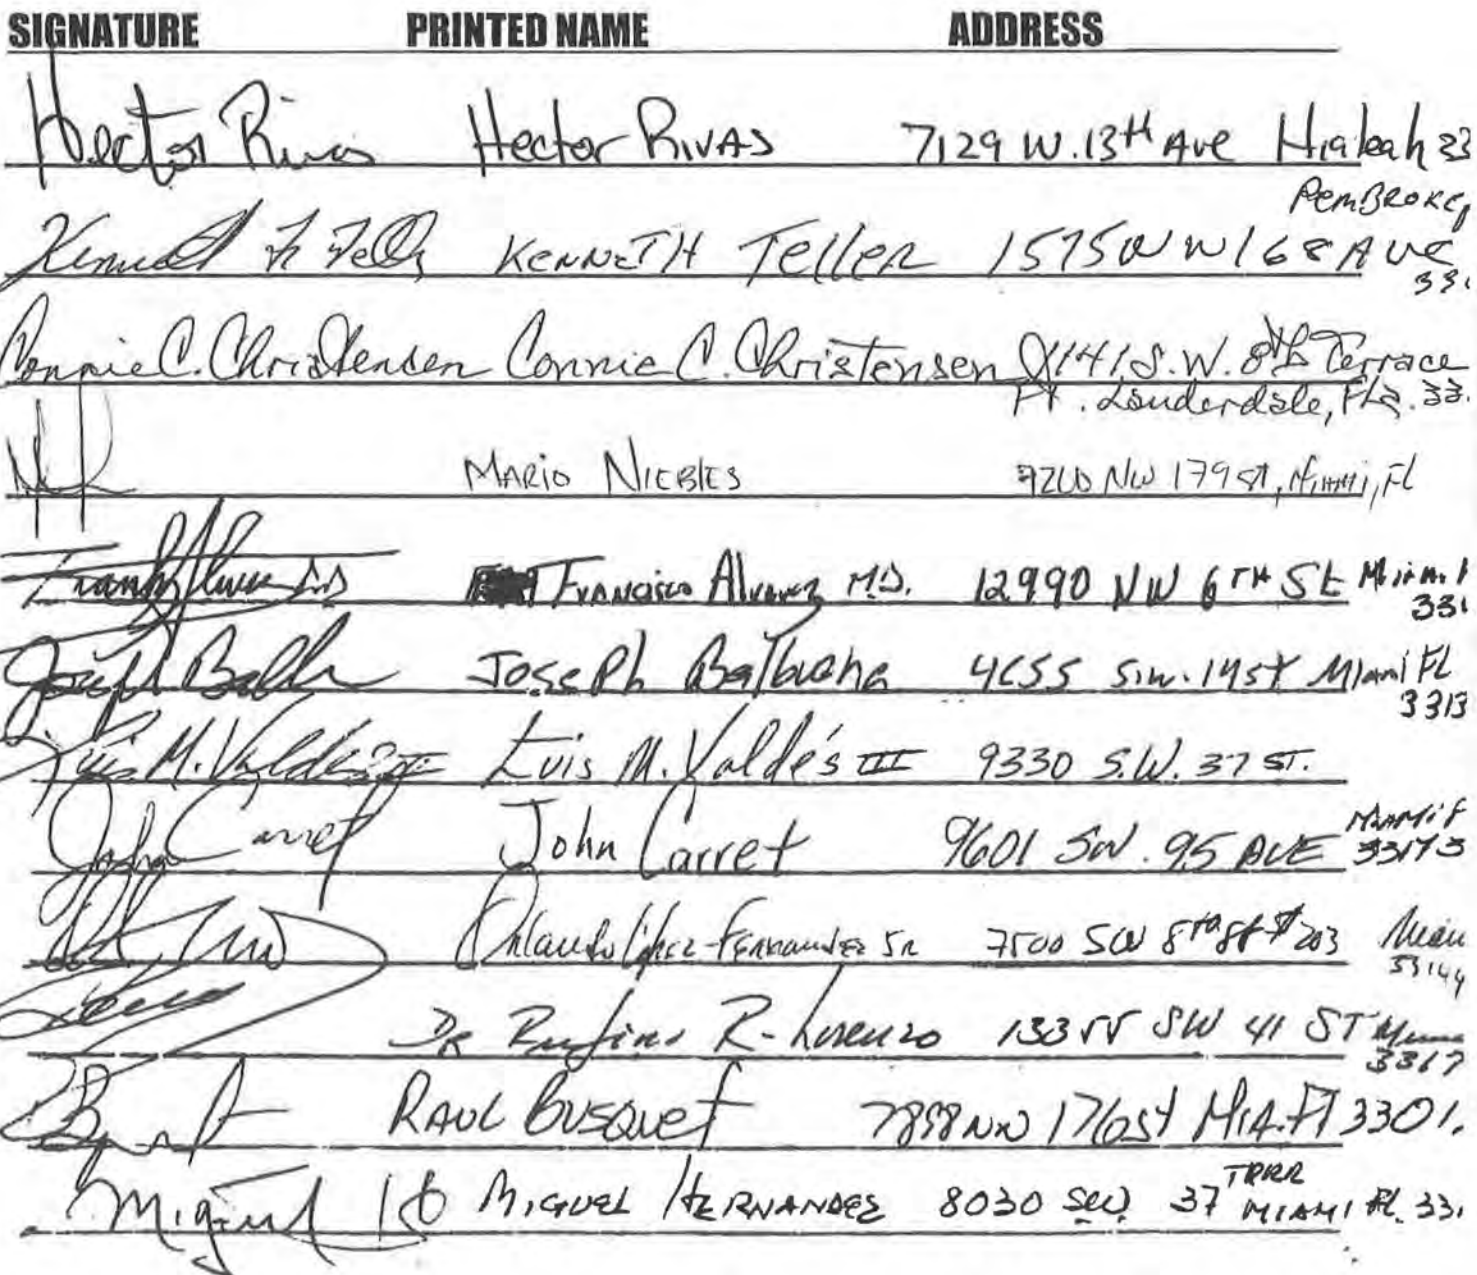 SIGNATURE PRINTED NAME ADDRESS
Hector Rivas Hector Rivas 7129 W. 13th Ave Hialeah 33
Pembroke,
Kenneth Teller KENNETH Teller 1575 NW 168 AVE
33
Connie C. Christensen Connie C. Christensen 141 S.W. 8th Terrace
Ft. Lauderdale, Fla. 33
MARIO NIEBLES NW 179 ST, Miami, Fl
Francisco Alvarez M.D. 12990 NW 6TH St Miami
33
Joseph Balbuena Joseph Balbuena 4655 S.W. 14 st Miami FL
3313
Luis M. Valdés III Luis M. Valdés III 9330 S.W. 37 ST.
Miami F
John Carret John Carret 9601 SW. 95 AVE 33173
Orlando Lopez-Fernandez SR 7500 SW 8th St #203
33144
DR Rufino R. Lorenzo SW 41 ST
3317
RAUL BUSQUET NW 176 St MIA. Fl 3301
TERR
Miguel MIGUEL HERNANDEZ 8030 SW 37 MIAMI FL. 33